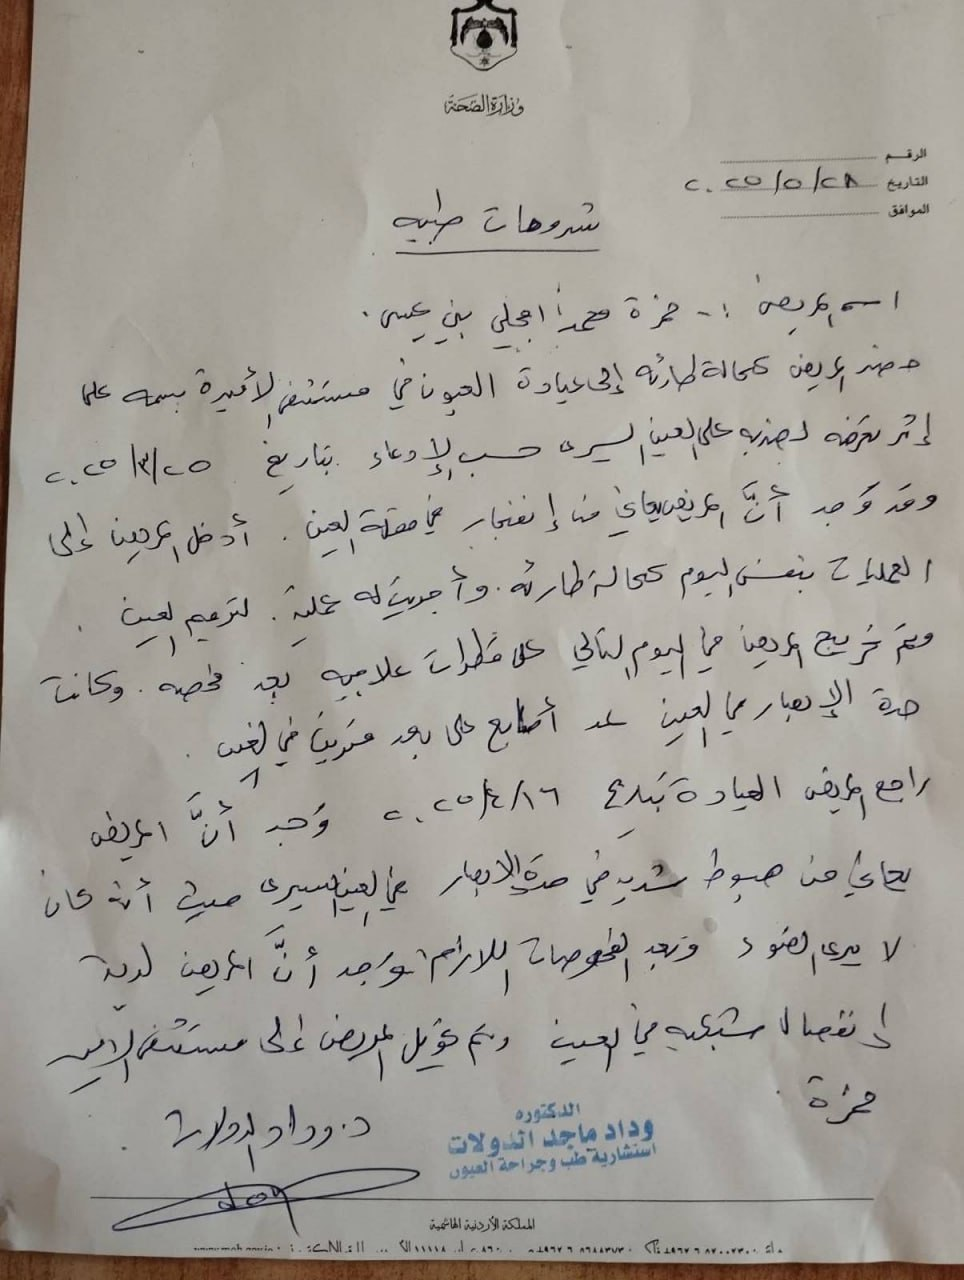 وزارة الصحة
الرقم
التاريخ ٢٠٢٥/٥/٢٨
الموافق
شروحات طبيه
اسم المريض :- حمزة محمد اجملي بني عيسى .
حضر المريض كحالة طارئه إلى عيادة العيون في مستشفى الأميرة بسمه علما
إثر تعرضه لضربه على العين اليسرى حسب الإدعاء بتاريخ ٢٠٢٥/٣/٢٥
وقد وُجد أنَّ المريض يعاني من إنفجار في مقلة العين . أُدخل المريض إلى
العمليات بنفس اليوم كحالة طارئه . وأجريت له عملية لترميم العين .
وتم تخريج المريض في اليوم التالي على قطرات علاجيه بعد فحصه . وكانت
حدة الإبصار في العين عد أصابع على بعد في العين .
راجع المريض العيادة بتاريخ ٢٠٢٥/٤/١٦ وُجد أنَّ المريض
يعاني من هبوط شديد في حدة الابصار في العين اليسرى حيث أنه كان
لا يرى الضوء وبعد الفحوصات اللازمة وُجد أنَّ المريض لدية
إنفصال شبكيه في العين وتم تحويل المريض إلى مستشفى الامير
حمزة .
د. وداد الدولات
الدكتوره
وداد ماجد الدولات
استشارية طب وجراحة العيون
المملكة الأردنية الهاشمية